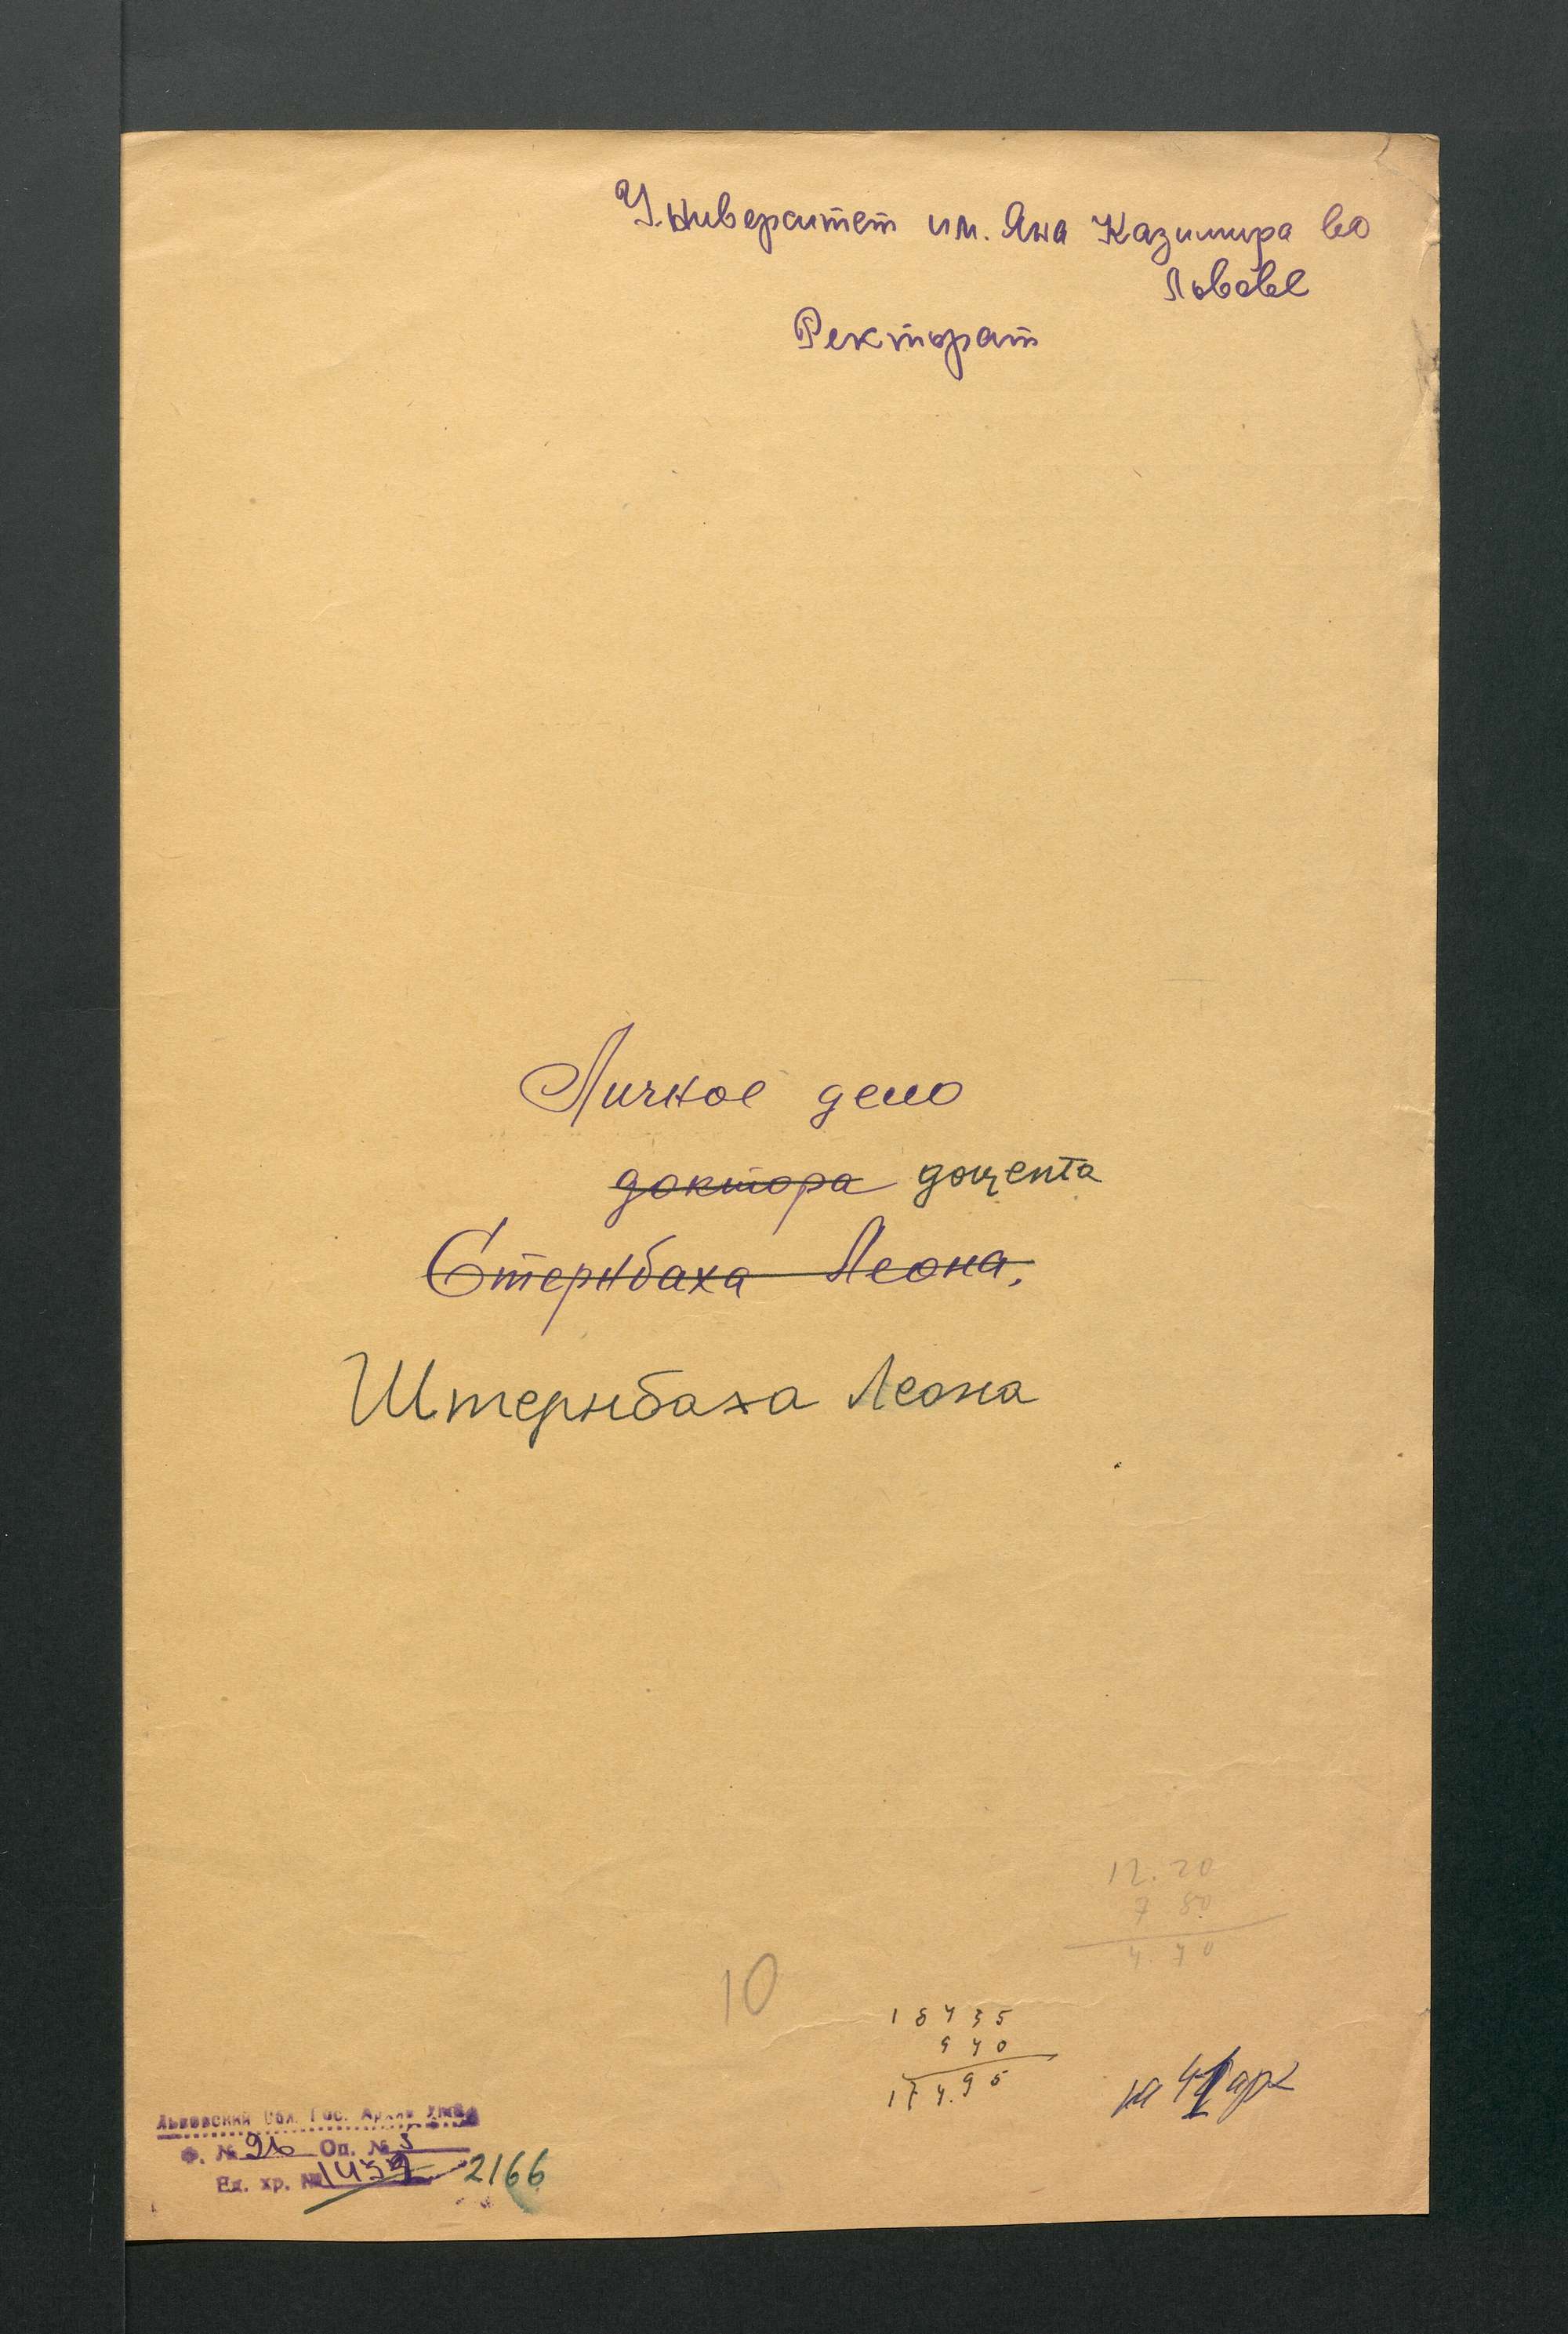 Университет им. Яна Казимира во
Львове
Ректорат
Личное дело
доктора доцента
Стернбаха Леона.
Штернбаха Леона
12.20
7 80
4.40
10
18435
940
17495
на 41 арк
Львовский Обл. Гос. Архив
Ф. № 26 Оп. № 5
Ед. хр. № 1439 2166